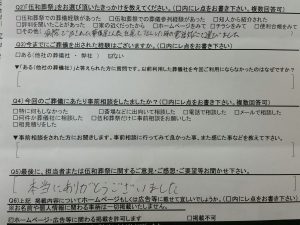 Q2「伍和葬祭」をお選び頂いたきっかけを教えてください。(□内にレ点をお書き下さい。複数回答可)
□伍和葬祭での葬儀経験があった □伍和葬祭での葬儀参列経験があった □知人から紹介された
□ホームページ □チラシ
Q3 今までにご葬儀を出された経験はございますか。(□内にレ点をお書き下さい。)
□ある(他社の葬儀社・弊社) □ない
▼「ある(他社の葬儀社)」と答えられた方に質問です。以前利用した葬儀社を今回ご利用にならなかったのはなぜですか?
Q4) 今回のご葬儀にあたり事前相談をしましたか?(□内にレ点をお書き下さい。複数回答可)
□特に何もしなかった □斎場などに出向いた □電話で相談した □メールで相談した
□何件か葬儀社に相談した □自宅に来てもらった □事前にホームページなどでお問合わせ
□相見積りをした
▼事前相談をされた方にお聞きします。事前相談に行ってみて良かった事、また感じた事などを教えて下さい。
Q5)最後に、担当者または伍和葬祭に関するご意見・ご感想・ご要望等お聞かせ下さい。
本当にありがとうございました
Q6)上記 掲載内容についてホームページもしくは広告等に載せて宜しいでしょうか。(□内にレ点をお書き下さい。)
※お名前や個人情報に関わる事柄は一切掲載いたしません。
ホームページ・広告等に関わる掲載を許可します □掲載不可